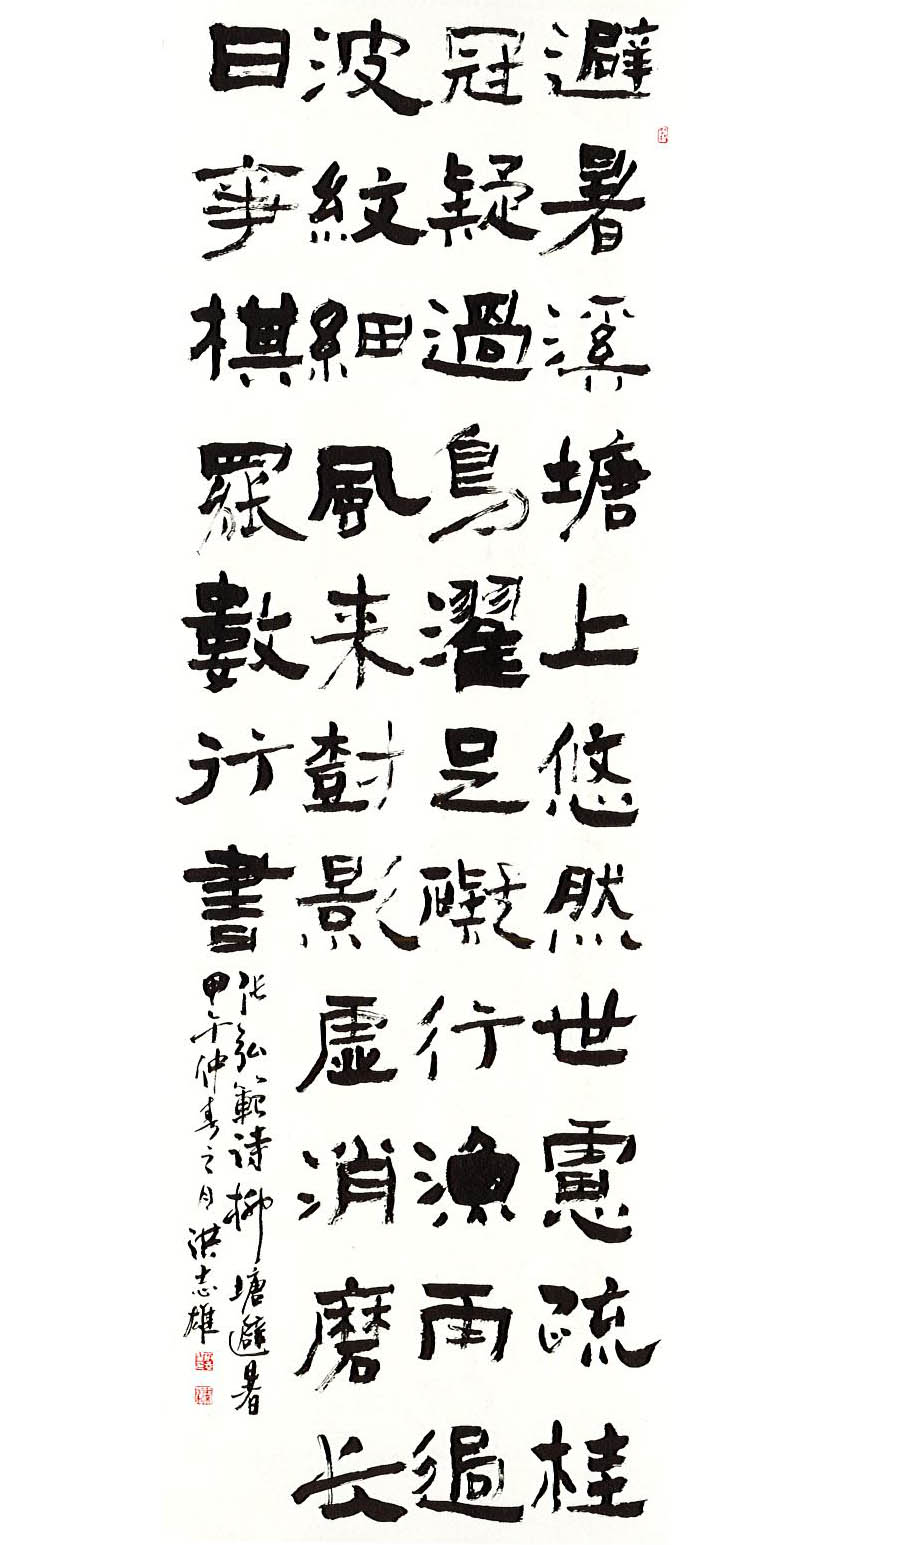 避暑溪塘上悠然世慮疏桂
冠疑過鳥濯足礙行漁雨過
波紋細風来樹影虛消磨長
日事棋罷數行書
張弘範詩柳塘避暑
甲午仲春之月洪志雄